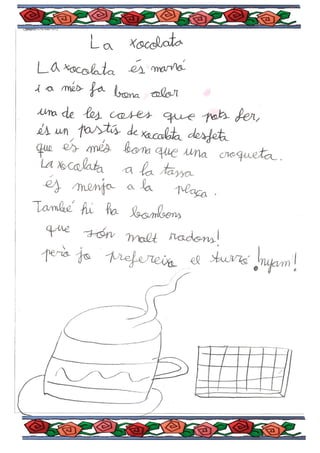 La xocolata
La xocolata és marró
i a més fa bona olor
una de les coses que pots fer,
és un pastís de xocolata desfeta
que és més bona que una croqueta.
La xocolata a la tassa
és menja a la plaça.
També hi ha bombons
que són molt rodons!
però jo prefereixo el turró! nyam!